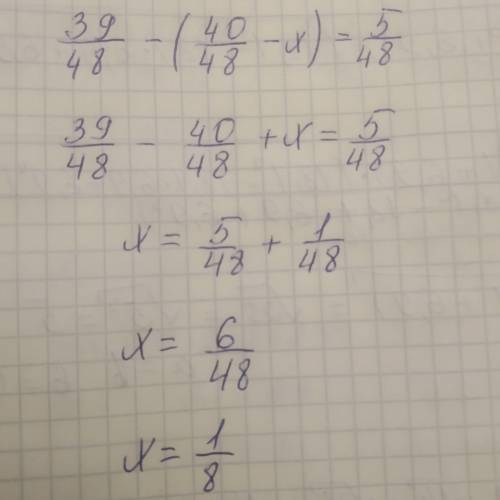 39/48 - (40/48 - x) = 5/48
39/48 - 40/48 + x = 5/48
x = 5/48 + 1/48
x = 6/48
x = 1/8